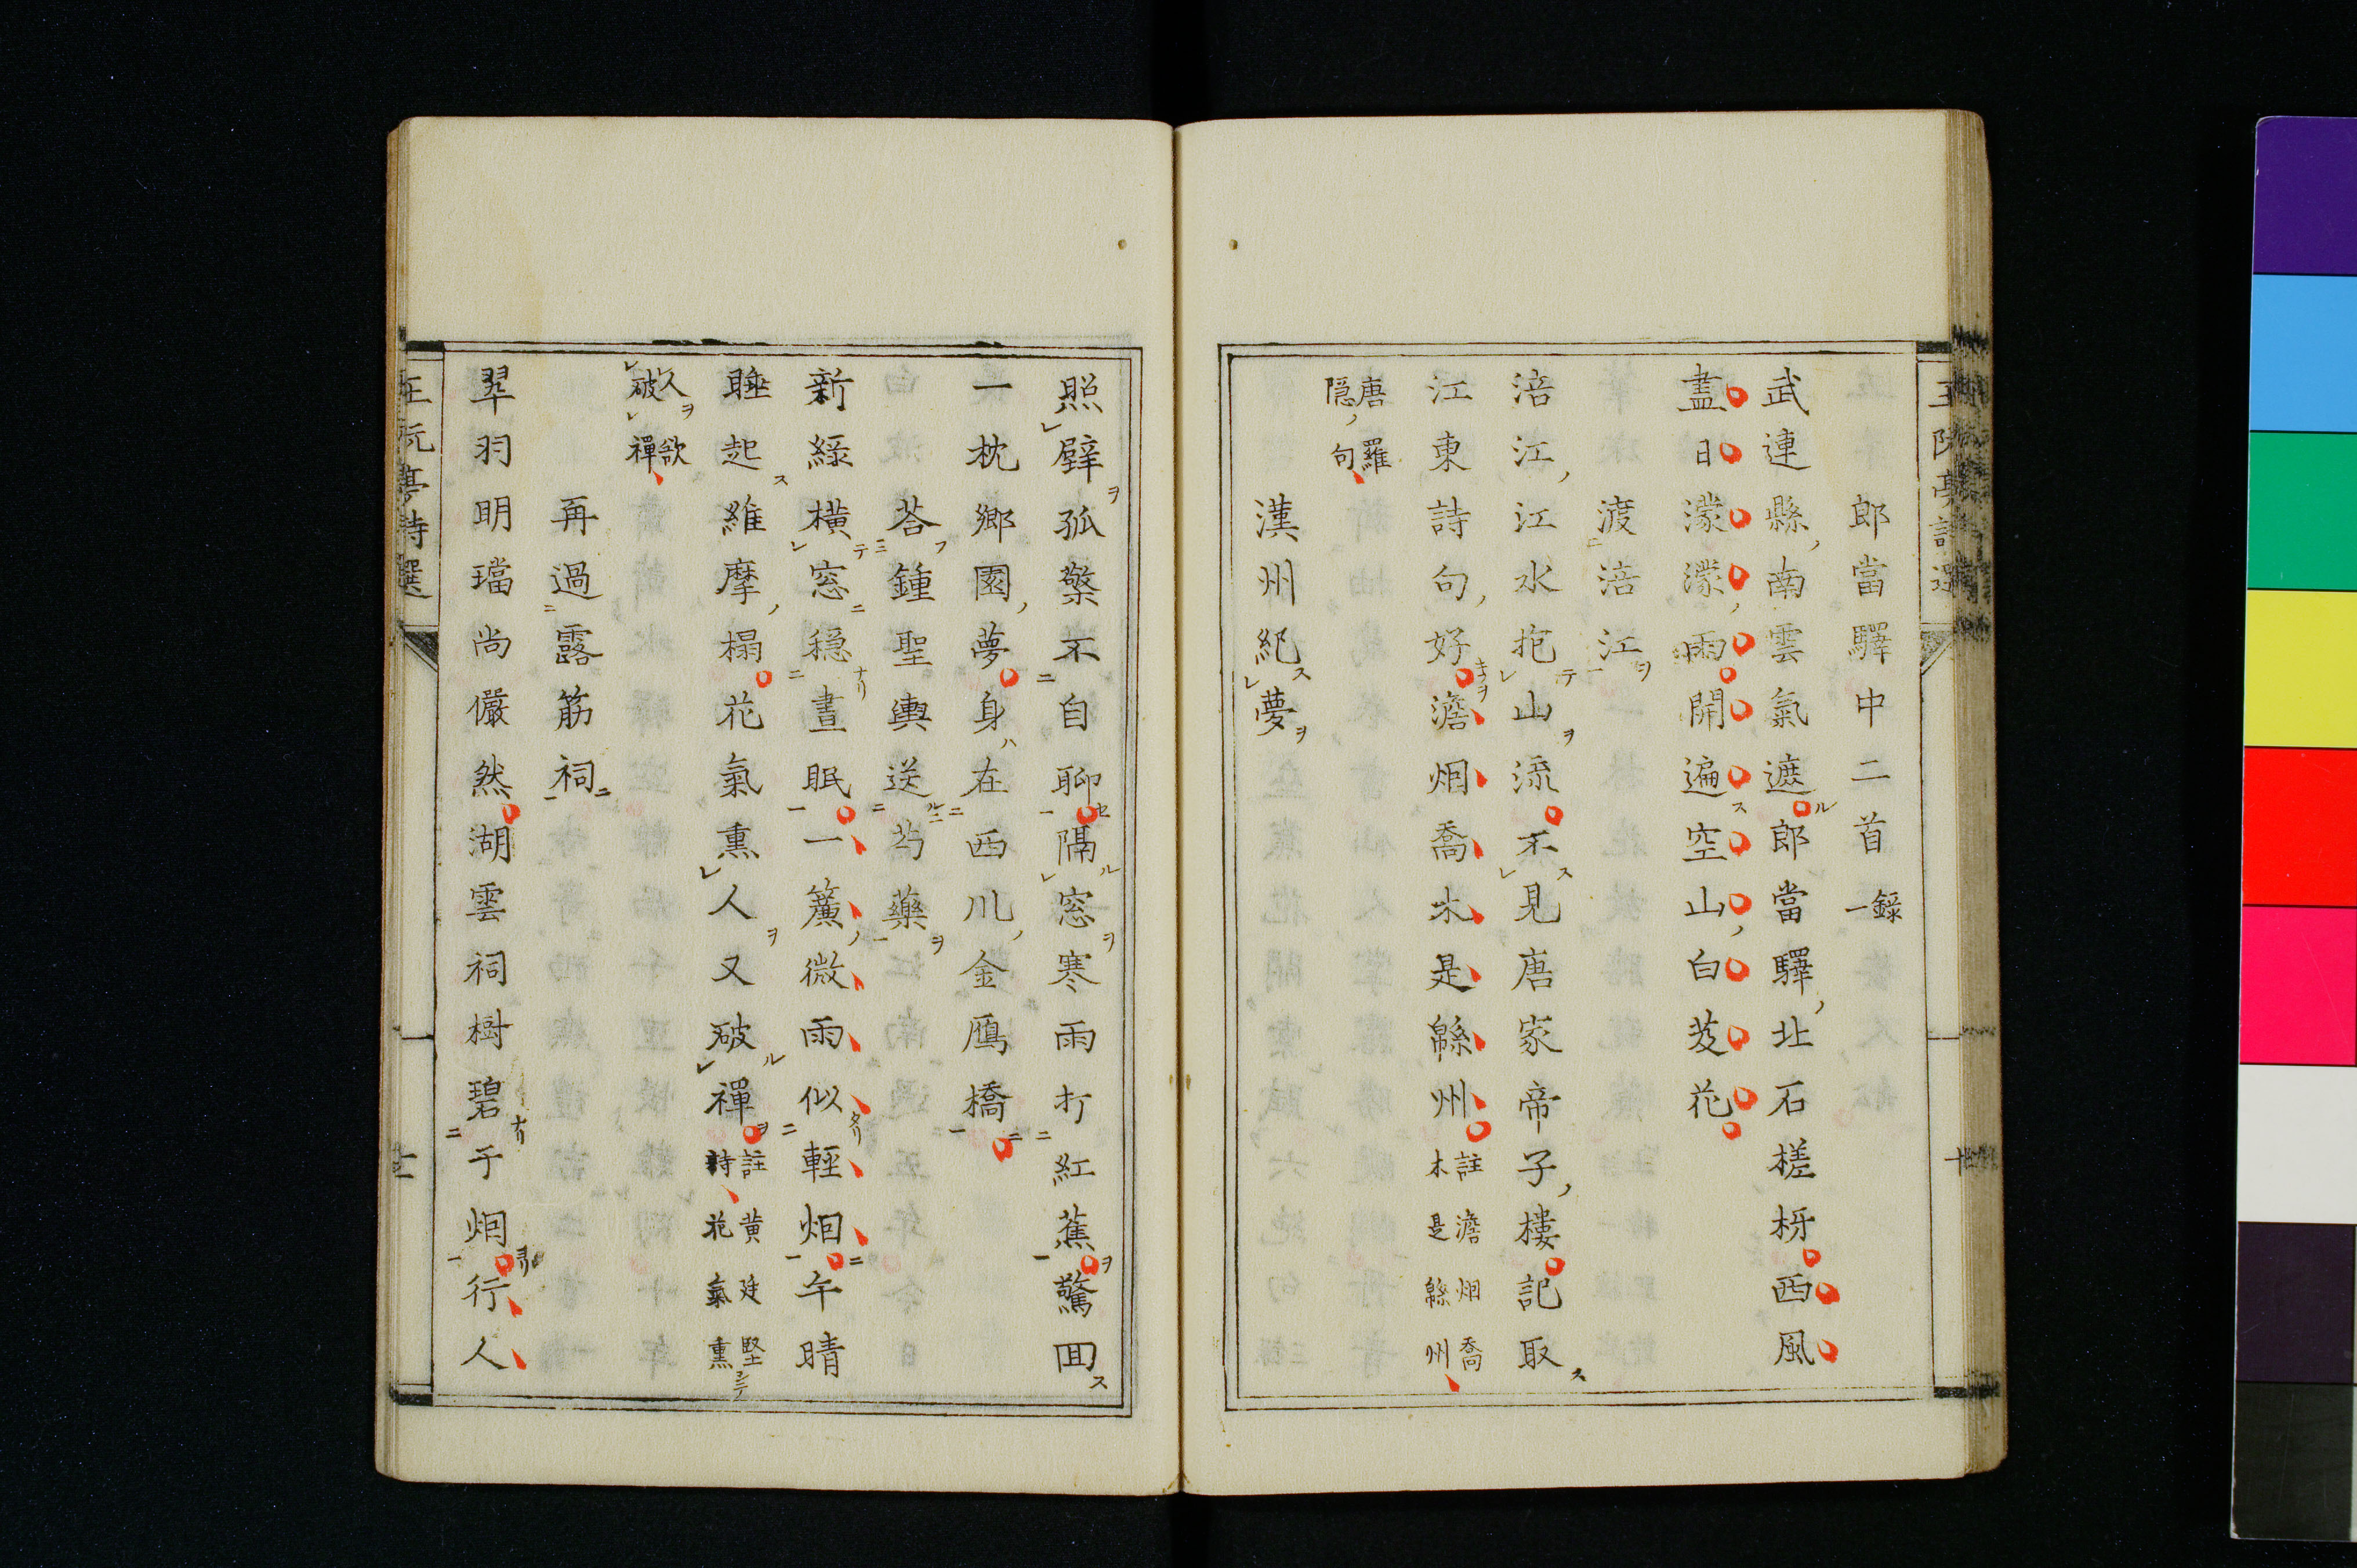 郎當驛中二首 錄一
武連縣南雲氣遮郎當驛北石槎枒西風
盡日濛濛雨開遍空山白芨花
渡涪江
涪江江水抱山流不見唐家帝子樓記取
江東詩句好澹烟喬木是緜州 註澹烟喬木是緜州
唐羅隠句
漢州紀夢
照壁孤檠不自聊隔窓寒雨打紅蕉驚回
一枕鄉園夢身在西川金鴈橋
荅鍾聖輿送芍藥
新綠橫窓穏晝眠一簾微雨似輕烟午晴
睡起維摩榻花氣熏人又破禪 註黄庭堅詩花氣熏
人欲破禪
再過露筋祠
翠羽明璫尚儼然湖雲祠樹碧于烟行人
王阮亭詩選